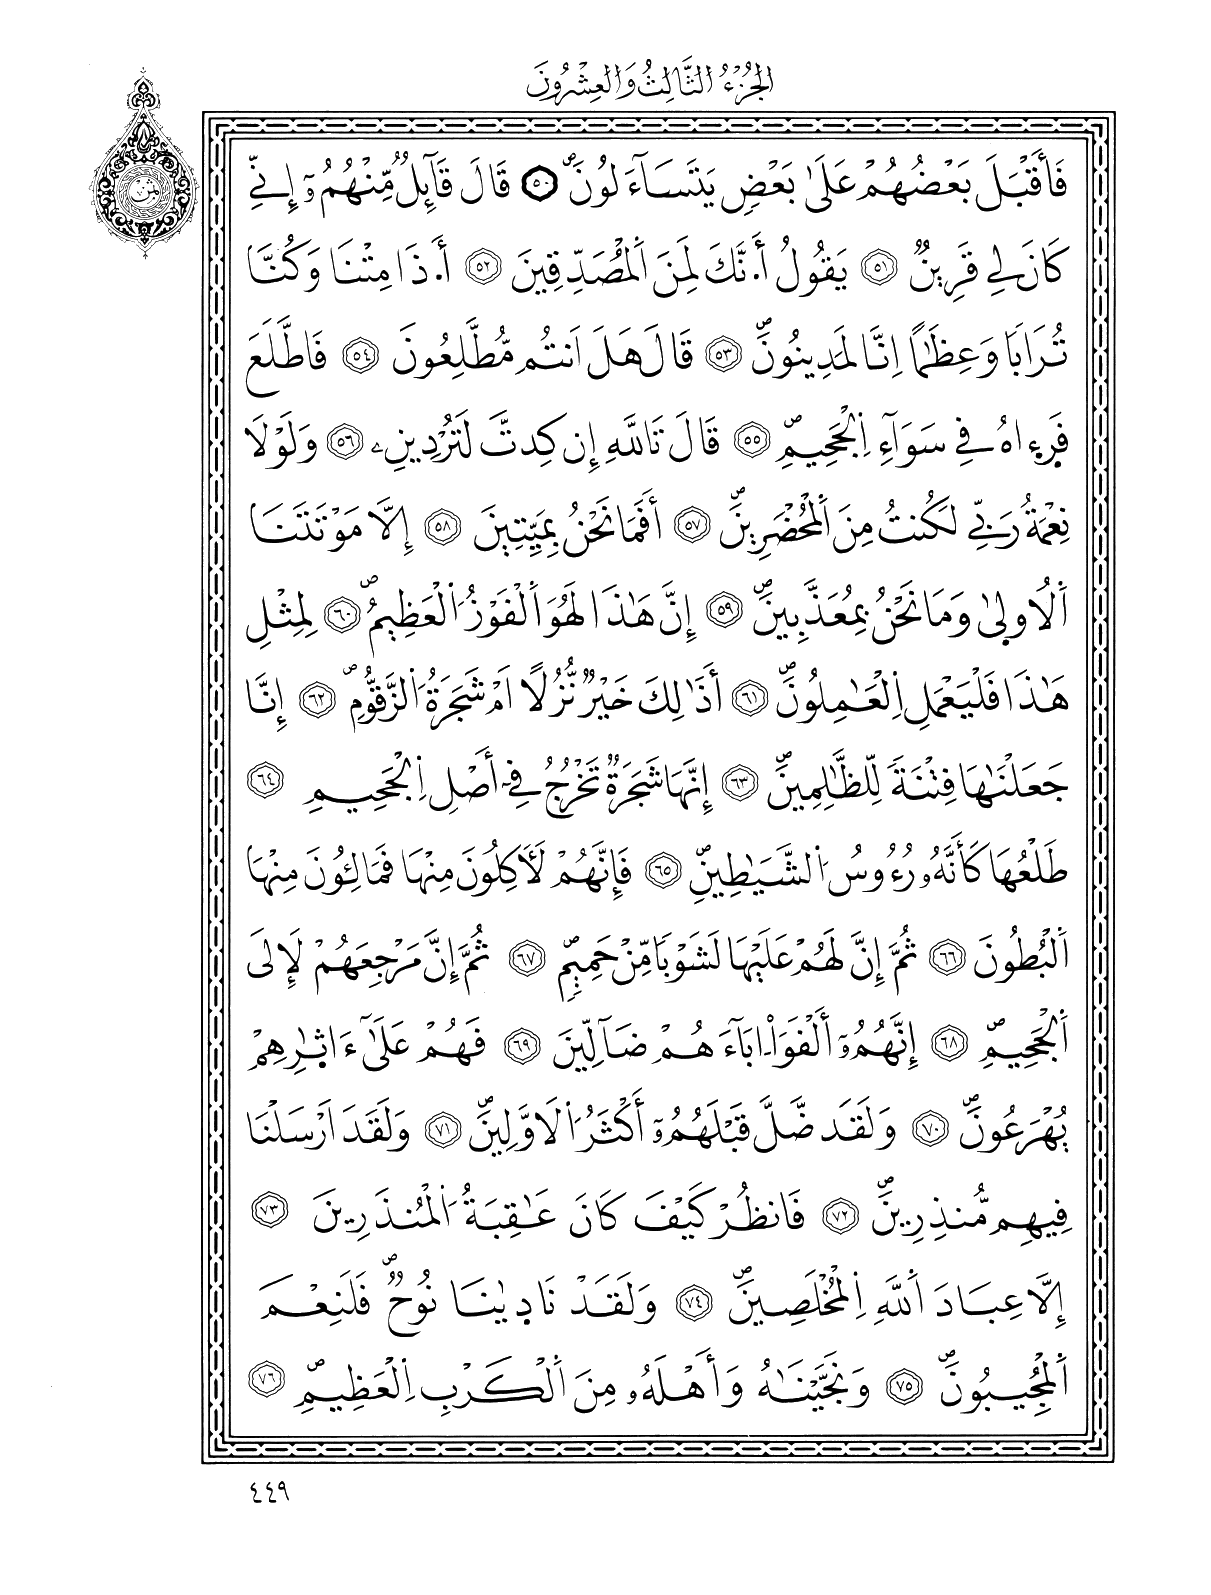 الجُزْءُ الثَّالِثُ وَالعِشْرُونَ
ثمن
فَأَقْبَلَ بَعْضُهُمْ عَلَىٰ بَعْضٍ يَتَسَآءَلُونَۖ ٥٠ قَالَ قَآئِلٌ مِّنْهُمُۥٓ إِنِّے
كَانَ لِے قَرِينٞ ٥١ يَقُولُ أَ.نَّكَ لَمِنَ اَ۬لْمُصَدِّقِينَ ٥٢ أَ.ذَا مِتْنَا وَكُنَّا
تُرَاباٗ وَعِظَٰماً اِنَّا لَمَدِينُونَۖ ٥٣ قَالَ هَلَ اَنتُم مُّطَّلِعُونَ ٥٤ فَاطَّلَعَ
فَرَءِاهُ فِے سَوَآءِ اِ۬لْجَحِيمِۖ ٥٥ قَالَ تَاللَّهِ إِن كِدتَّ لَتُرْدِينِۦ ٥٦ وَلَوْلَا
نِعْمَةُ رَبِّے لَكُنتُ مِنَ اَ۬لْمُحْضَرِينَۖ ٥٧ أَفَمَا نَحْنُ بِمَيِّتِينَ ٥٨ إِلَّا مَوْتَتَنَا
اَ۬لُاولَىٰ وَمَا نَحْنُ بِمُعَذَّبِينَۖ ٥٩ إِنَّ هَٰذَا لَهُوَ اَ۬لْفَوْزُ اُ۬لْعَظِيمُۖ ٦٠ لِمِثْلِ
هَٰذَا فَلْيَعْمَلِ اِ۬لْعَٰمِلُونَۖ ٦١ أَذَٰلِكَ خَيْرٞ نُّزُلاً اَمْ شَجَرَةُ اُ۬لزَّقُّومِۖ ٦٢ إِنَّا
جَعَلْنَٰهَا فِتْنَةٗ لِّلظَّٰلِمِينَۖ ٦٣ إِنَّهَا شَجَرَةٞ تَخْرُجُ فِےٓ أَصْلِ اِ۬لْجَحِيمِ ٦٤
طَلْعُهَا كَأَنَّهُۥ رُءُوسُ اُ۬لشَّيَٰطِينِۖ ٦٥ فَإِنَّهُمْ لَأٓكِلُونَ مِنْهَا فَمَالِـُٔونَ مِنْهَا
اَ۬لْبُطُونَ ٦٦ ثُمَّ إِنَّ لَهُمْ عَلَيْهَا لَشَوْباٗ مِّنْ حَمِيمٖۖ ٦٧ ثُمَّ إِنَّ مَرْجِعَهُمْ لَإِلَى
اَ۬لْجَحِيمِۖ ٦٨ إِنَّهُمُۥٓ أَلْفَوَاْ ابَآءَهُمْ ضَآلِّينَ ٦٩ فَهُمْ عَلَىٰٓ ءَاثٰ۪رِهِمْ
يُهْرَعُونَۖ ٧٠ وَلَقَد ضَّلَّ قَبْلَهُمُۥٓ أَكْثَرُ اُ۬لَاوَّلِينَۖ ٧١ وَلَقَدَ اَرْسَلْنَا
فِيهِم مُّنذِرِينَۖ ٧٢ فَانظُرْ كَيْفَ كَانَ عَٰقِبَةُ اُ۬لْمُنذَرِينَ ٧٣
إِلَّا عِبَادَ اَ۬للَّهِ اِ۬لْمُخْلَصِينَۖ ٧٤ وَلَقَدْ نَادٜيٰنَا نُوحٞۖ فَلَنِعْمَ
اَ۬لْمُجِيبُونَۖ ٧٥ وَنَجَّيْنَٰهُ وَأَهْلَهُۥ مِنَ اَ۬لْكَرْبِ اِ۬لْعَظِيمِۖ ٧٦
٤٤٩